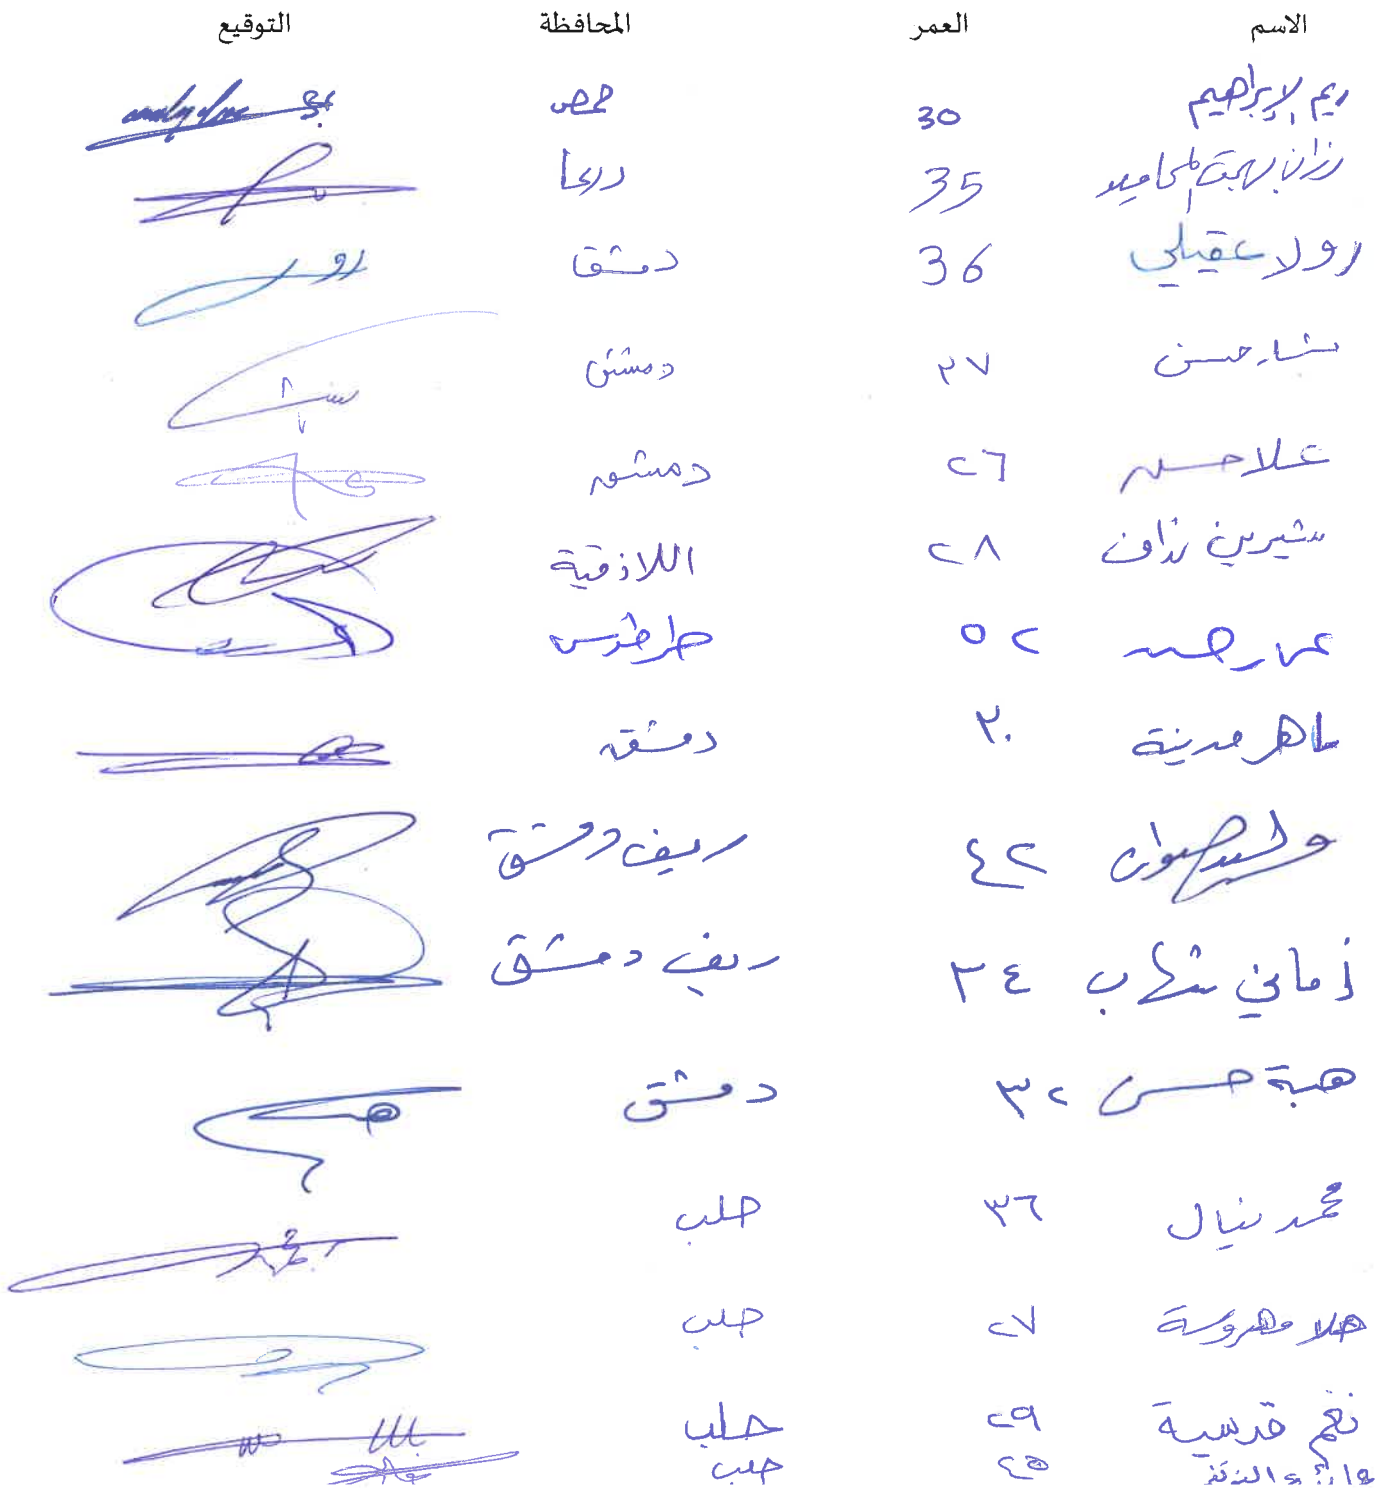 الاسم العمر المحافظة التوقيع
ريم الإبراهيم 30 حمص
رزان بهجت المحاميد 35 درعا
رولا عقيلي 36 دمشق
بشار حسن ٣٧ دمشق
علا حسن ٢٦ دمشق
شيرين نزاف ٢٨ اللاذقية
عمار حسن ٥٢ طرطوس
ماهر مدينة ٣٠ دمشق
وليد صوان ٤٢ ريف دمشق
أماني شهاب ٣٤ ريف دمشق
هبة حسن ٣٢ دمشق
محمد نيال ٣٦ حلب
هلا مهروسة ٢٧ حلب
نغم قدسية ٢٩ حلب
٤٥ حلب